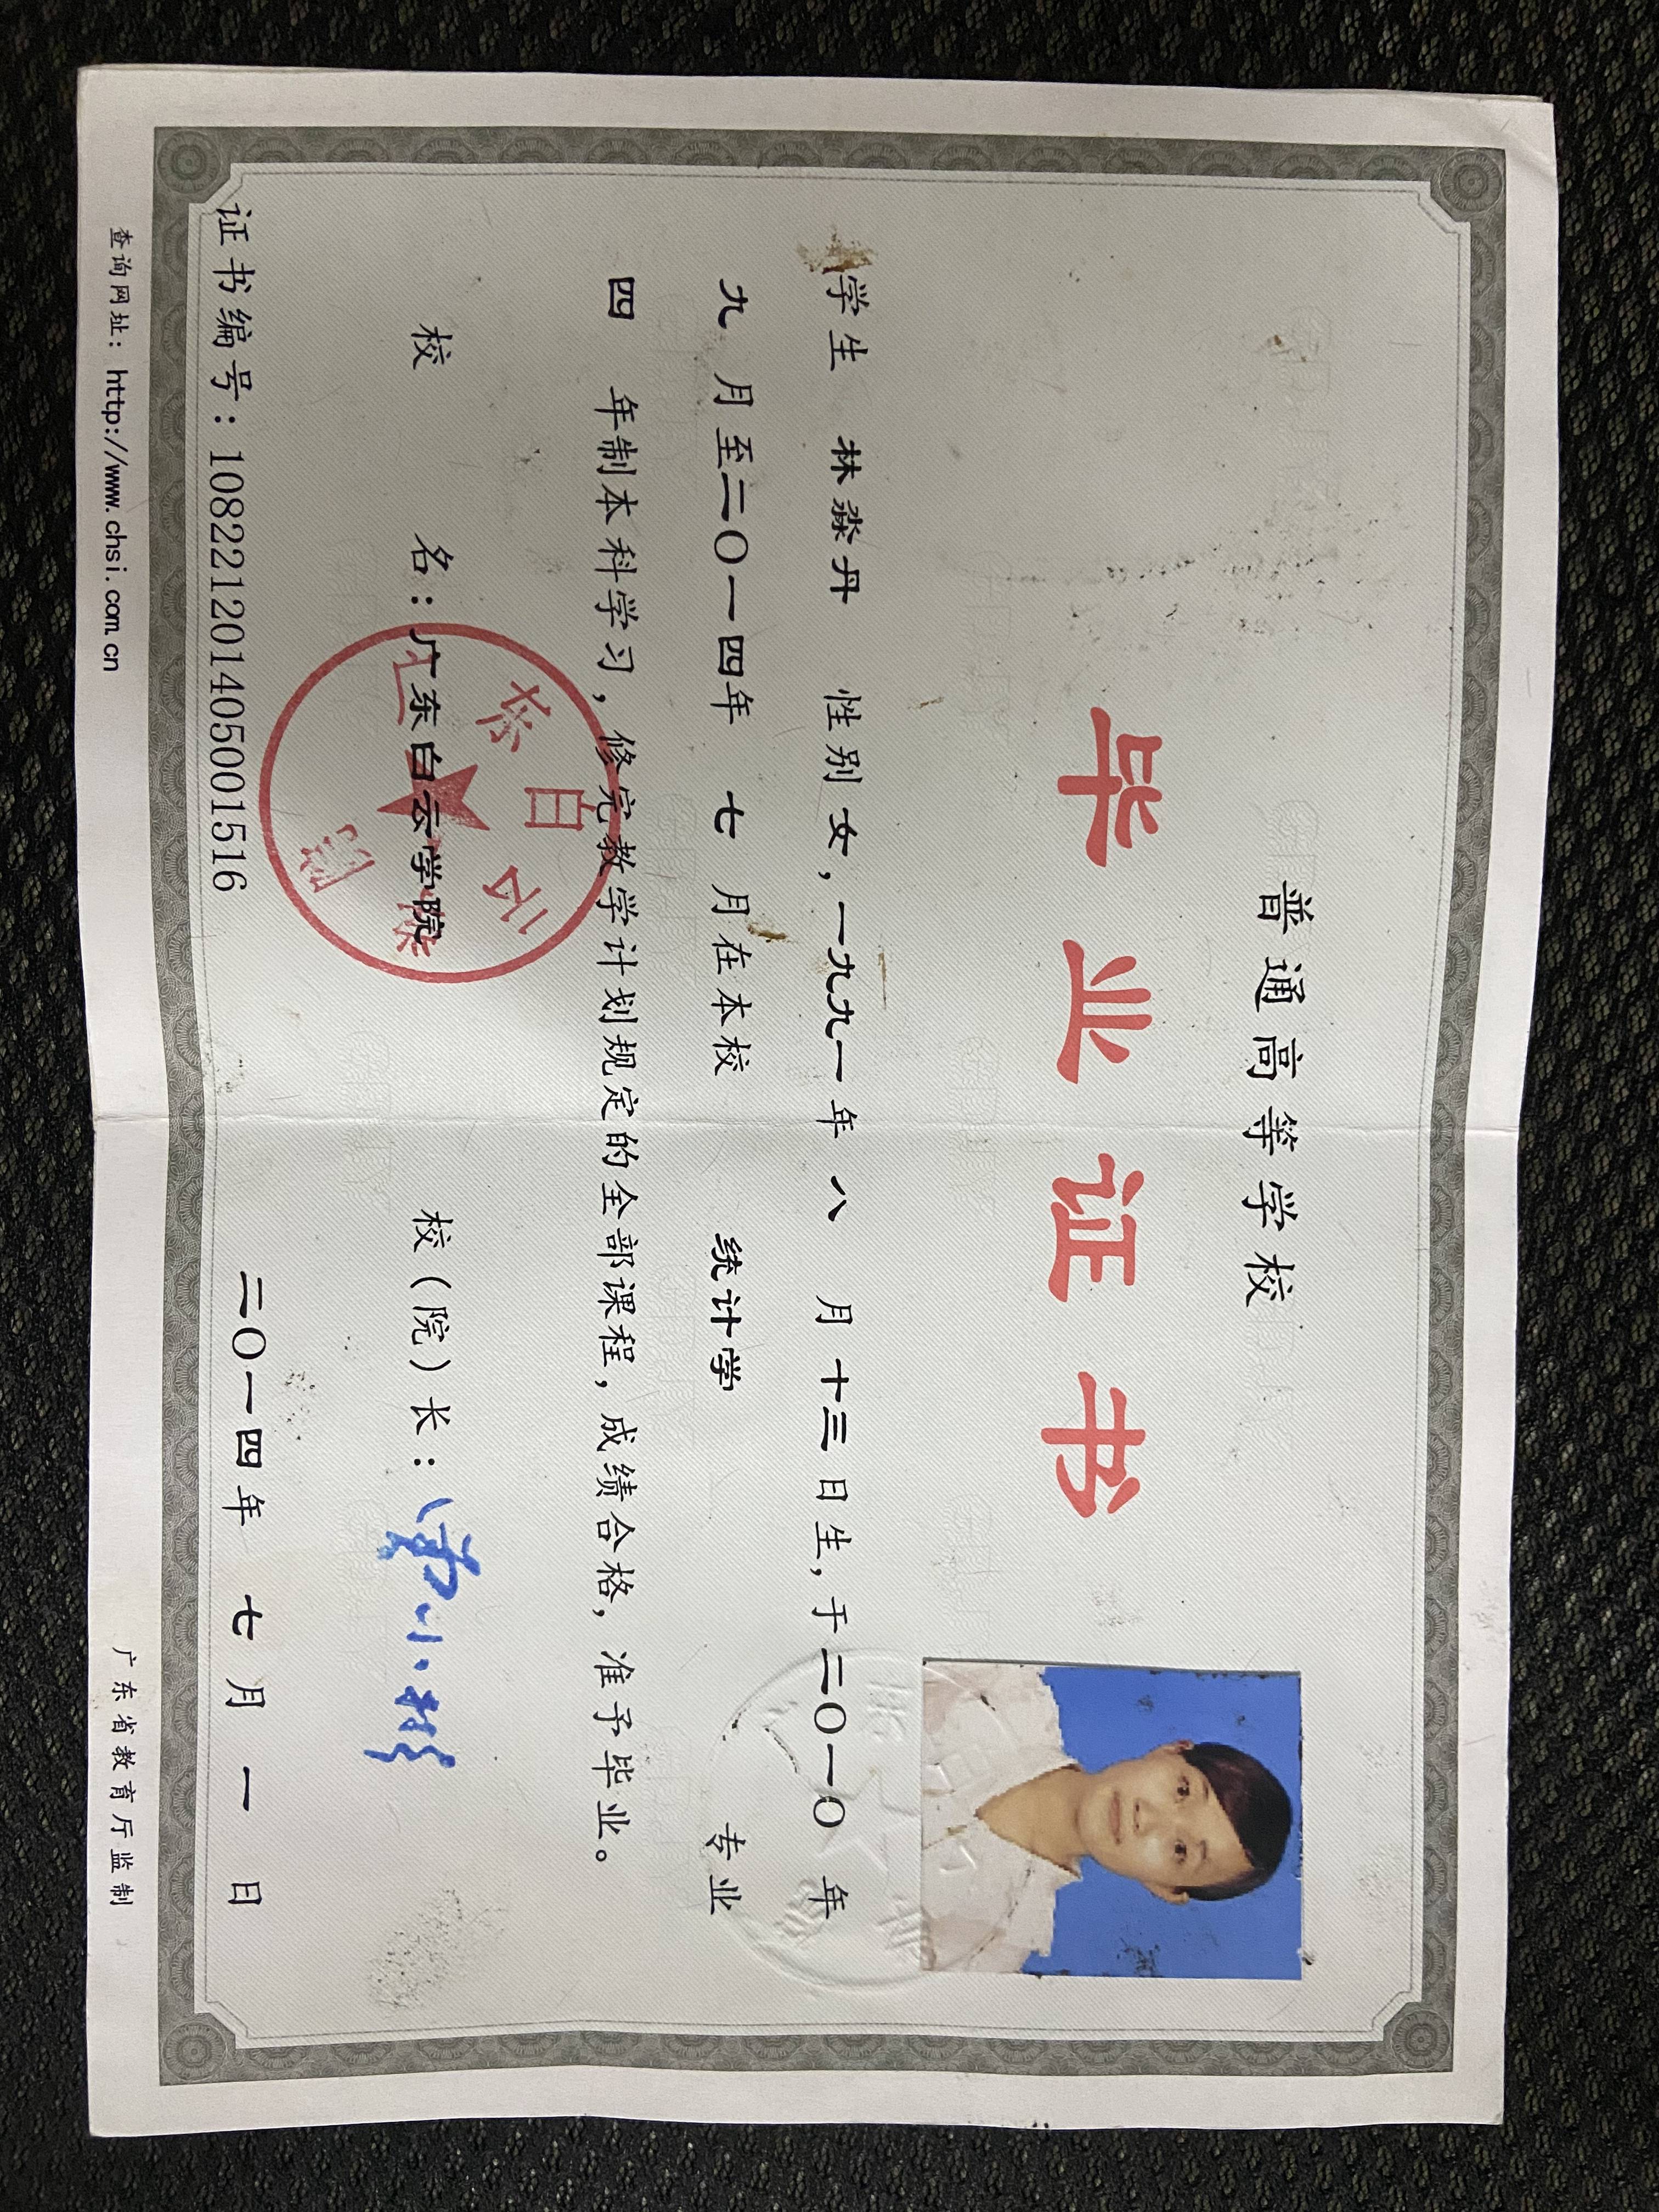 普通高等学校
毕业证书
学生 林淼丹 性别 女，一九九一年 八 月 十三 日生，于二〇一〇 年
九 月至二〇一四年 七 月在本校 统计学 专业
四 年制本科学习，修完教学计划规定的全部课程，成绩合格，准予毕业。
校 名：广东白云学院
校（院）长：
证书编号：108221201405001516
二〇一四年 七 月 一 日
查询网址：http://www.chsi.com.cn
广东省教育厅监制